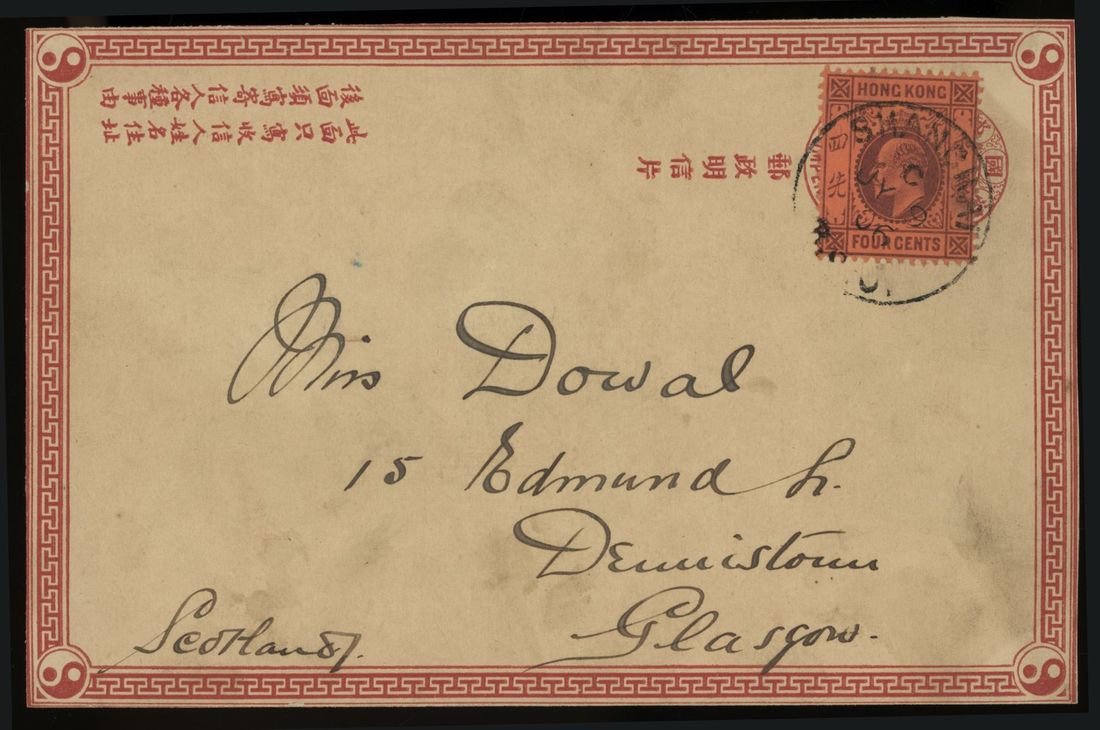 此面只寫收信人姓名住址
後面須寫寄信人各種事由
郵政明信片
國
HONG KONG
四先
FOUR CENTS
SHANGHAI
Miss Dowal
15 Edmund St.
Dennistoun
Glasgow.
Scotland.